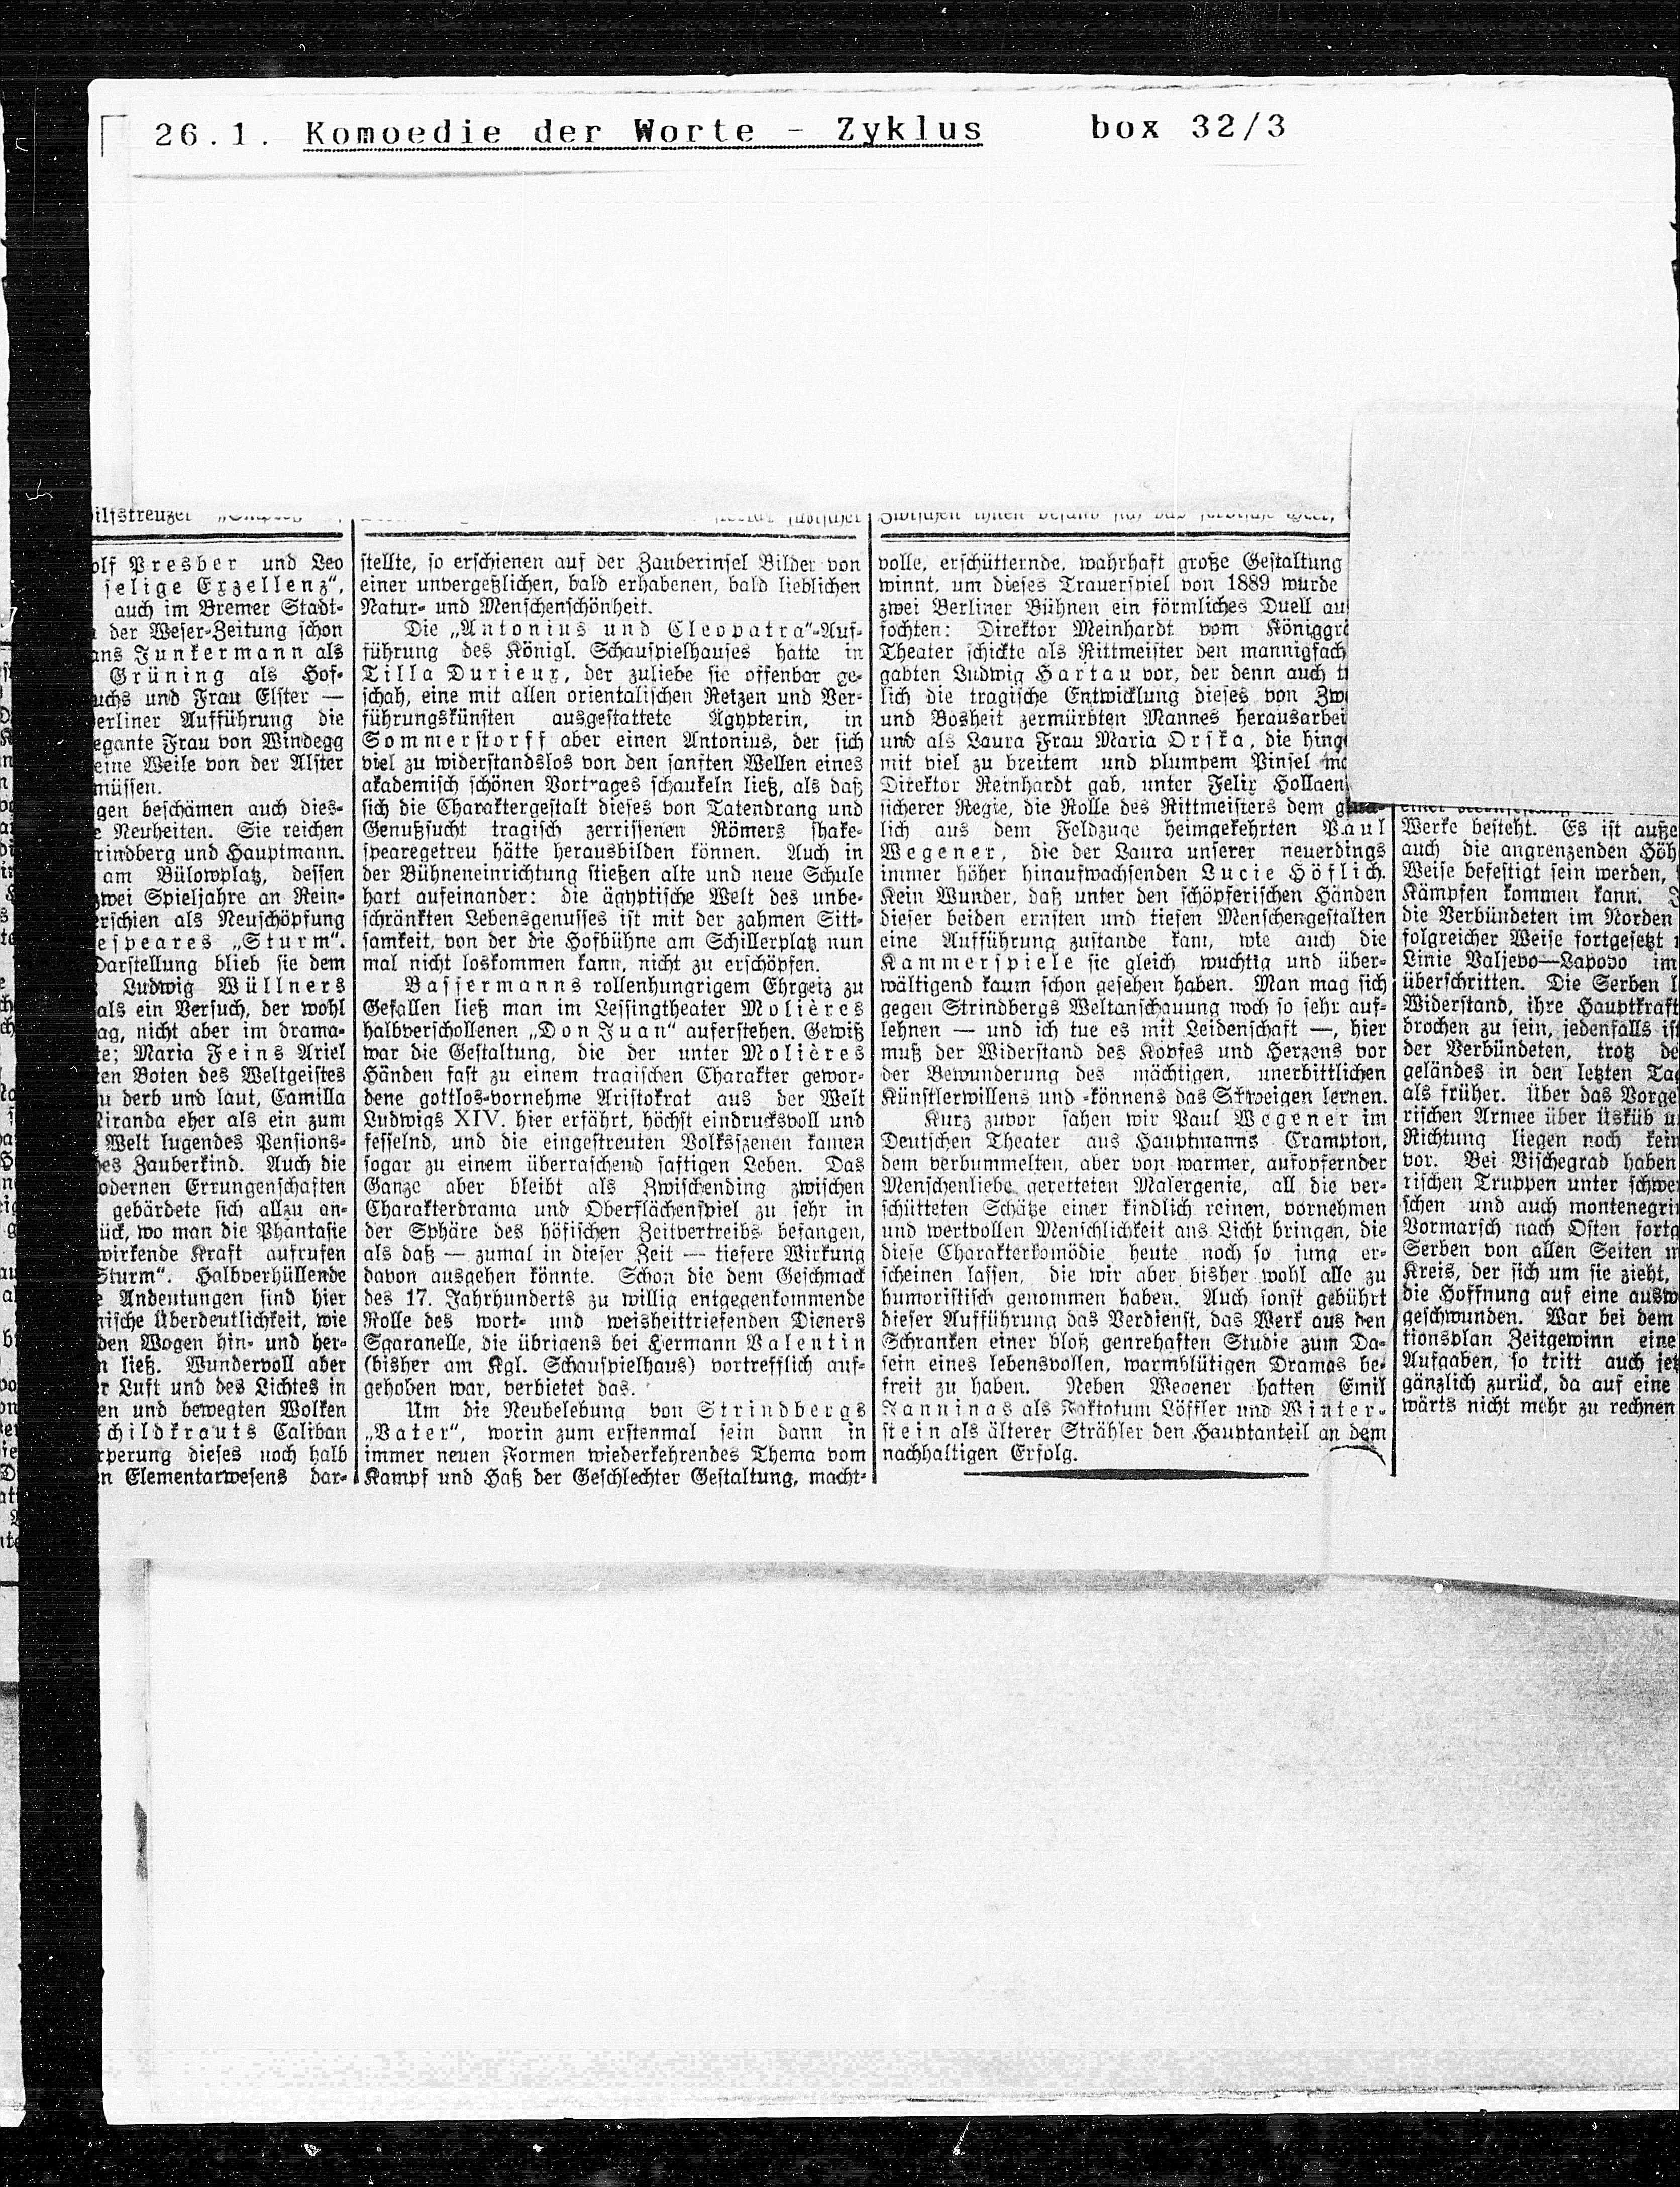 26.1. Komoedie der Worte - Zyklus box 32/3
ilfskreuzer
olf Presber und Leo
selige Exzellenz“,
auch im Bremer Stadt-
der Weser-Zeitung schon
ans Junkermann als
Grüning als Hof-
uchs und Frau Elster —
erliner Aufführung die
egante Frau von Windegg
eine Weile von der Alster
müssen.
gen beschämen auch dies-
e Neuheiten. Sie reichen
rindberg und Hauptmann.
am Bülowplatz, dessen
zwei Spieljahre an Rein-
erschien als Neuschöpfung
espeares „Sturm“.
Darstellung blieb sie dem
Ludwig Wüllners
als ein Versuch, der wohl
ag, nicht aber im drama-
te; Maria Feins Ariel
en Boten des Weltgeistes
u derb und laut, Camilla
Miranda eher als ein zum
Welt lugendes Pensions-
hes Zauberkind. Auch die
odernen Errungenschaften
gebärdete sich allzu an-
ück, wo man die Phantasie
wirkende Kraft aufrufen
Sturm“. Halbverhüllende
e Andeutungen sind hier
nische Überdeutlichkeit, wie
den Wogen hin- und her-
n ließ. Wundervoll aber
r Luft und des Lichtes in
en und bewegten Wolken
childkrauts Caliban
rperung dieses noch halb
n Elementarwesens dar-
stellte, so erschienen auf der Zauberinsel Bilder von
einer unvergeßlichen, bald erhabenen, bald lieblichen
Natur- und Menschenschönheit.
Die „Antonius und Cleopatra“-Auf-
führung des Königl. Schauspielhauses hatte in
Tilla Durieux, der zuliebe sie offenbar ge-
schah, eine mit allen orientalischen Reizen und Ver-
führungskünsten ausgestattete Ägypterin, in
Sommerstorff aber einen Antonius, der sich
viel zu widerstandslos von den sanften Wellen eines
akademisch schönen Vortrages schaukeln ließ, als daß
sich die Charaktergestalt dieses von Tatendrang und
Genußsucht tragisch zerrissenen Römers shake-
spearegetreu hätte herausbilden können. Auch in
der Bühneneinrichtung stießen alte und neue Schule
hart aufeinander: die ägyptische Welt des unbe-
schränkten Lebensgenusses ist mit der zahmen Sitt-
samkeit, von der die Hofbühne am Schillerplatz nun
mal nicht loskommen kann, nicht zu erschöpfen.
Bassermanns rollenhungrigem Ehrgeiz zu
Gefallen ließ man im Lessingtheater Molières
halbverschollenen „Don Juan“ auferstehen. Gewiß
war die Gestaltung, die der unter Molières
Händen fast zu einem tragischen Charakter gewor-
dene gottlos-vornehme Aristokrat aus der Welt
Ludwigs XIV. hier erfährt, höchst eindrucksvoll und
fesselnd, und die eingestreuten Volksszenen kamen
sogar zu einem überraschend saftigen Leben. Das
Ganze aber bleibt als Zwischending zwischen
Charakterdrama und Oberflächenspiel zu sehr in
der Sphäre des höfischen Zeitvertreibs befangen,
als daß — zumal in dieser Zeit — tiefere Wirkung
davon ausgehen könnte. Schon die dem Geschmack
des 17. Jahrhunderts zu willig entgegenkommende
Rolle des wort- und weisheittriefenden Dieners
Sganarelle, die übrigens bei Hermann Valentin
(bisher am Kgl. Schauspielhaus) vortrefflich auf-
gehoben war, verbietet das.
Um die Neubelebung von Strindbergs
„Vater“, worin zum erstenmal sein dann in
immer neuen Formen wiederkehrendes Thema vom
Kampf und Haß der Geschlechter Gestaltung, macht-
zwischen ihnen befand sich das serbische Heer,
volle, erschütternde, wahrhaft große Gestaltung
winnt, um dieses Trauerspiel von 1889 wurde
zwei Berliner Bühnen ein förmliches Duell au
fochten: Direktor Meinhardt vom Königgrä
Theater schickte als Rittmeister den mannigfach
gabten Ludwig Hartau vor, der denn auch t
lich die tragische Entwicklung dieses von Zw
und Bosheit zermürbten Mannes herausarbei
und als Laura Frau Maria Orska, die hing
mit viel zu breitem und plumpem Pinsel
Direktor Reinhardt gab, unter Felix Hollaen
sicherer Regie, die Rolle des Rittmeisters dem
lich aus dem Feldzuge heimgekehrten Paul
Wegener, die der Laura unserer neuerdings
immer höher hinaufwachsenden Lucie Höflich.
Kein Wunder, daß unter den schöpferischen Händen
dieser beiden ernsten und tiefen Menschengestalten
eine Aufführung zustande kam, wie auch die
Kammerspiele sie gleich wuchtig und über-
wältigend kaum schon gesehen haben. Man mag sich
gegen Strindbergs Weltanschauung noch so sehr auf-
lehnen — und ich tue es mit Leidenschaft —, hier
muß der Widerstand des Kopfes und Herzens vor
der Bewunderung des mächtigen, unerbittlichen
Künstlerwillens und -könnens das Schweigen lernen.
Kurz zuvor sahen wir Paul Wegener im
Deutschen Theater aus Hauptmanns Crampton,
dem verbummelten, aber von warmer, aufopfernder
Menschenliebe geretteten Malergenie, all die ver-
schütteten Schätze einer kindlich reinen, vornehmen
und wertvollen Menschlichkeit ans Licht bringen, die
diese Charakterkomödie heute noch so jung er-
scheinen lassen, die wir aber bisher wohl alle zu
humoristisch genommen haben. Auch sonst gebührt
dieser Aufführung das Verdienst, das Werk aus den
Schranken einer bloß genrehaften Studie zum Da-
sein eines lebensvollen, warmblütigen Dramas be-
freit zu haben. Neben Wegener hatten Emil
Jannings als Faktotum Löffler und Winter-
stein als älterer Strähler den Hauptanteil an dem
nachhaltigen Erfolg.
Werke besteht. Es ist auße
auch die angrenzenden Höh
Weise befestigt sein werden,
Kämpfen kommen kann.
die Verbündeten im Norden
folgreicher Weise fortgesetzt
Linie Valjevo—Lapovo im
überschritten. Die Serben
Widerstand, ihre Hauptkraft
brochen zu sein, jedenfalls is
der Verbündeten, trotz de
geländes in den letzten Ta
als früher. Über das Vorge
rischen Armee über Üsküb u
Richtung liegen noch kein
vor. Bei Vischegrad haben
rischen Truppen unter schwe
schen und auch montenegri
Vormarsch nach Osten fortg
Serben von allen Seiten
Kreis, der sich um sie zieht,
die Hoffnung auf eine ausw
geschwunden. War bei dem
tionsplan Zeitgewinn eine
Aufgaben, so tritt auch je
gänzlich zurück, da auf eine
wärts nicht mehr zu rechnen